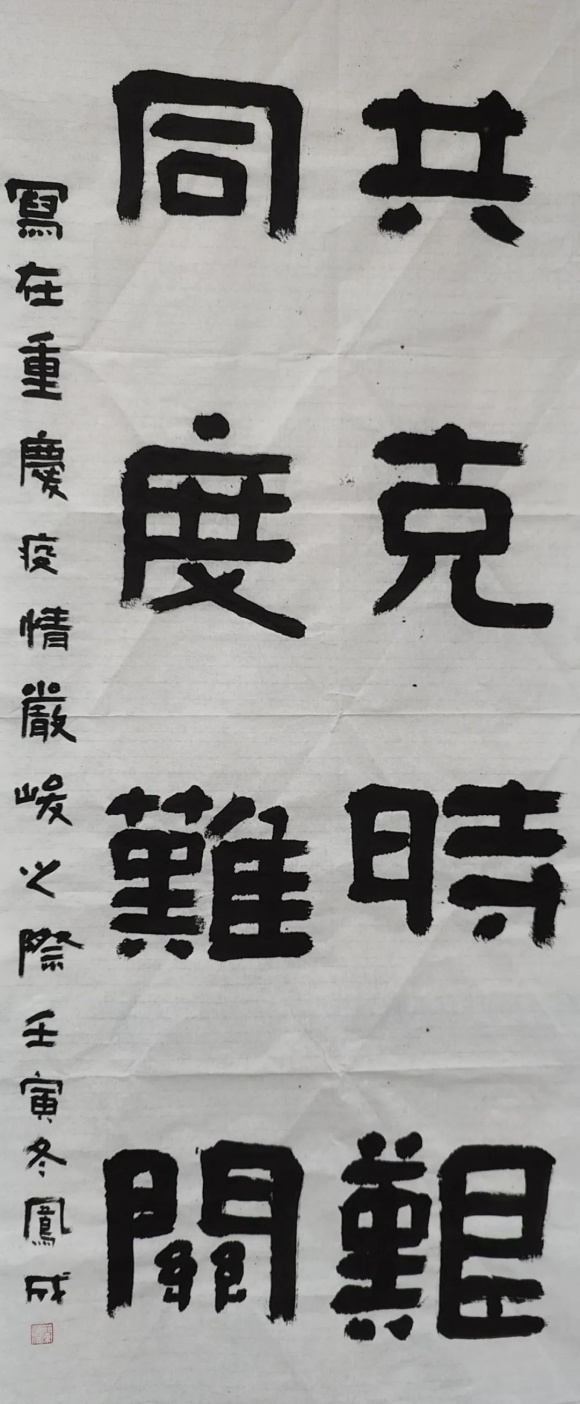 共克時艱
同度難關
寫在重慶疫情嚴峻之際壬寅冬鳳成